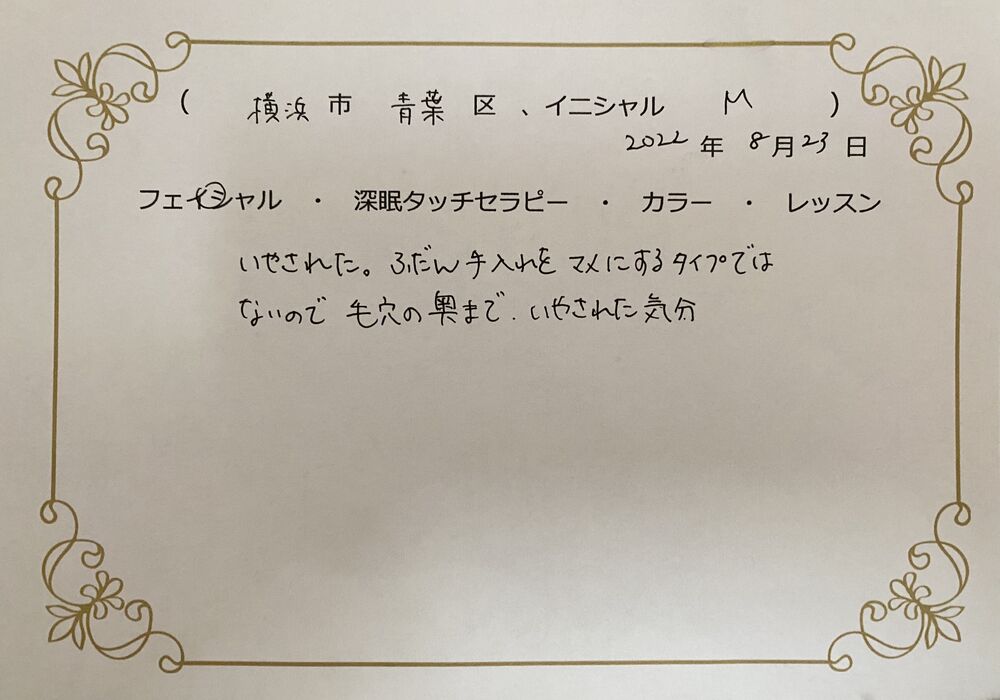 ( 横浜 市 青葉 区 、イニシャル M )
2022 年 8 月 23 日
フェイシャル ・ 深眠タッチセラピー ・ カラー ・ レッスン
いやされた。ふだん手入れを マメにするタイプでは
ないので 毛穴の奥まで.いやされた気分